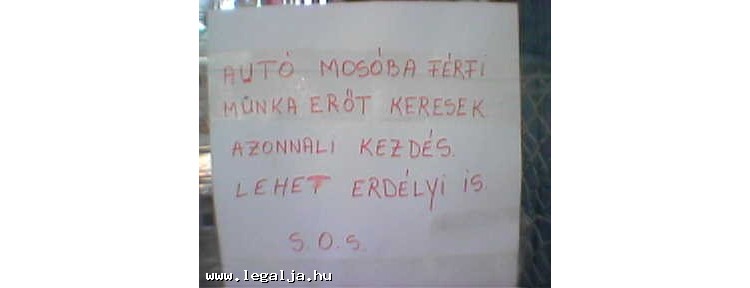 AUTÓ MOSÓBA FÉRFI
MUNKA ERŐT KERESEK
AZONNALI KEZDÉS.
LEHET ERDÉLYI IS.
S.O.S.
www.legalja.hu